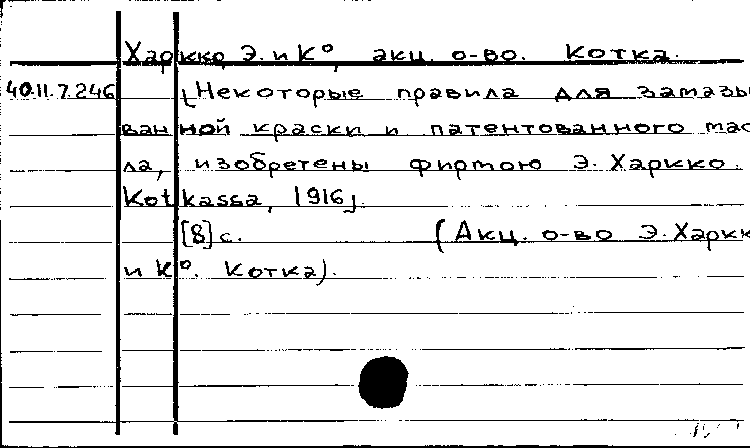 Харкко, Э. и К°, акц. о-во. Котка.
40.11.7.246 [Некоторые правила для замазы
ванной краски и патентованного мас
ла, изобретены фирмою Э. Харкко.
Kotkassa, 1916].
[8] с. (Акц. о-во Э. Харкк
и К°. Котка).